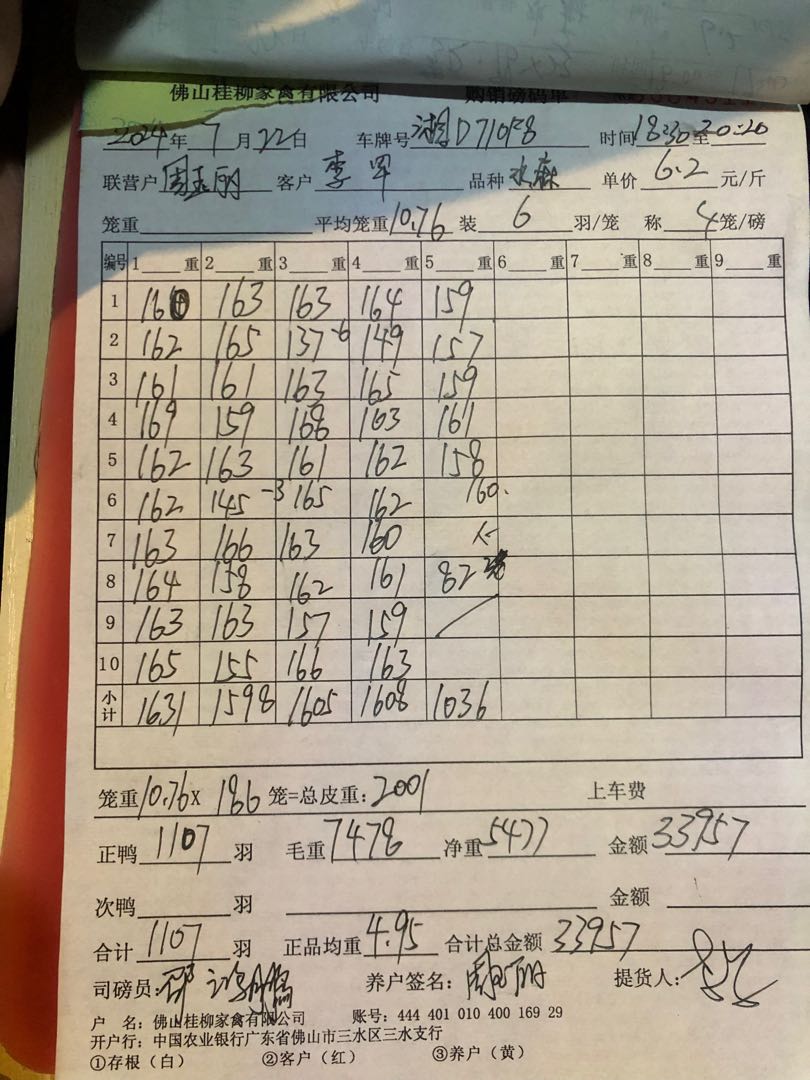 佛山桂柳家禽有限公司 购销磅码单
2024年 7月22日 车牌号 时间18:30至20:20
联营户 客户 李 品种 单价 6.2 元/斤
笼重 平均笼重10.76 装 6 羽/笼 称 4笼/磅
编号 1 重 2 重 3 重 4 重 5 重 6 重 7 重 8 重 9 重
1 160 163 163 164 159
2 162 165 137-6 149 157
3 161 161 163 165 159
4 169 159 168 163 161
5 162 163 161 162 158
6 162 145-3 165 162 160.
7 163 166 163 160
8 164 158 162 161 82
9 163 163 157 159
10 165 155 166 163
小计 1631 1598 1605 1608 1036
笼重10.76X 186 笼=总皮重:2001 上车费
正鸭 1107 羽 毛重7478 净重5477 金额33957
次鸭 羽 金额
合计 1107 羽 正品均重4.95 合计总金额 33957
司磅员: 养户签名: 提货人:
户 名:佛山桂柳家禽有限公司 账号:444 401 010 400 169 29
开户行:中国农业银行广东省佛山市三水区三水支行
①存根(白) ②客户(红) ③养户(黄)